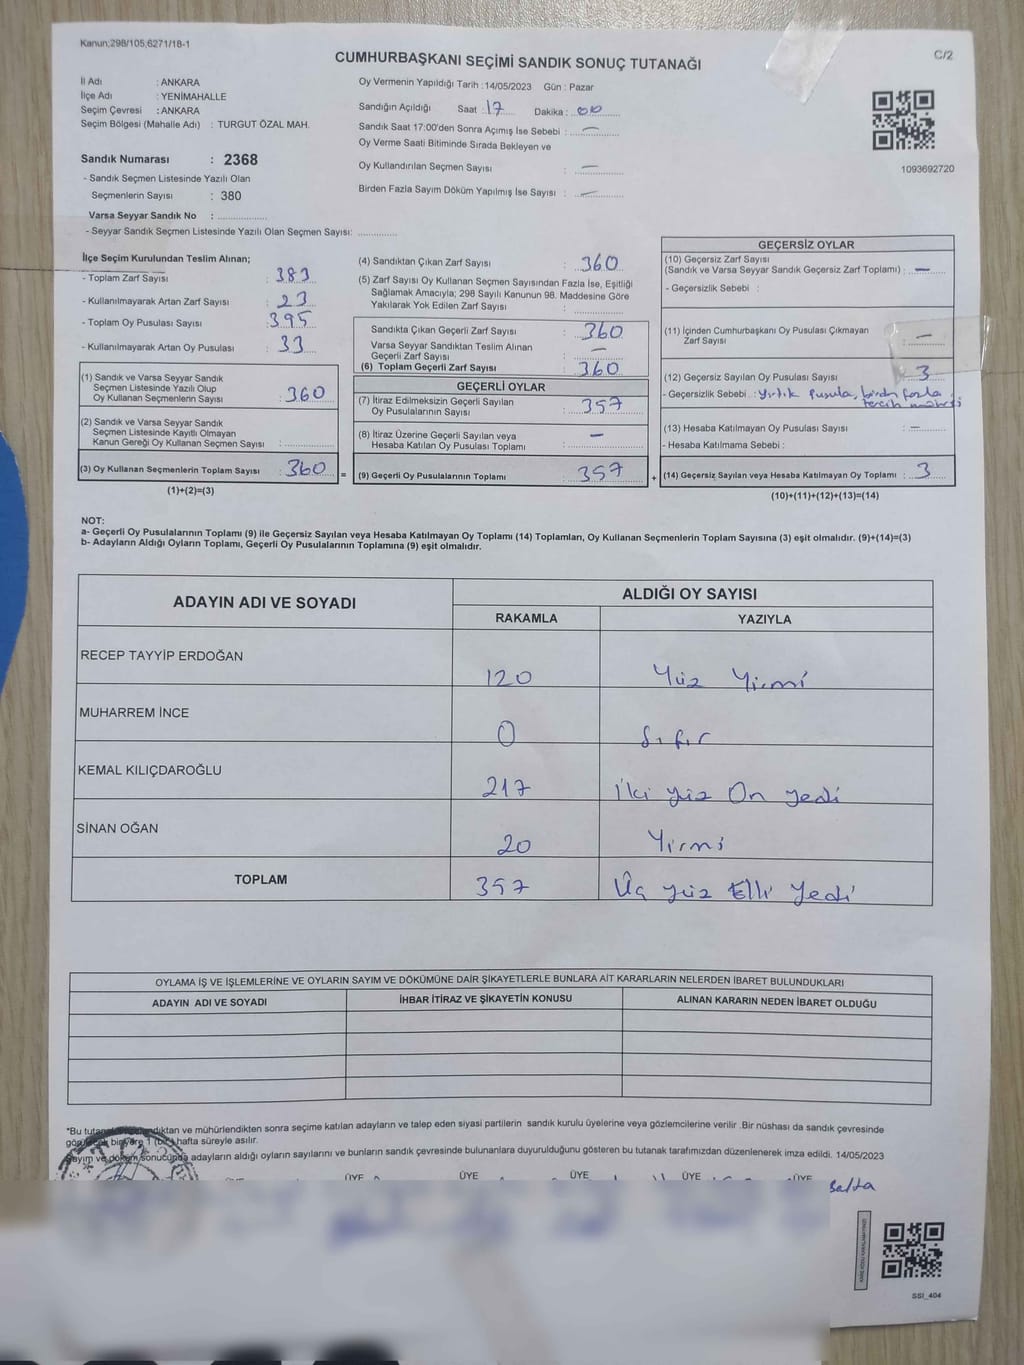 Kanun;298/105,6271/18-1
CUMHURBAŞKANI SEÇİMİ SANDIK SONUÇ TUTANAĞI
C/2
İl Adı : ANKARA
İlçe Adı : YENİMAHALLE
Seçim Çevresi : ANKARA
Seçim Bölgesi (Mahalle Adı) : TURGUT ÖZAL MAH.
Sandık Numarası : 2368
- Sandık Seçmen Listesinde Yazılı Olan
Seçmenlerin Sayısı : 380
Varsa Seyyar Sandık No :
- Seyyar Sandık Seçmen Listesinde Yazılı Olan Seçmen Sayısı:
Oy Vermenin Yapıldığı Tarih : 14/05/2023 Gün : Pazar
Sandığın Açıldığı Saat : 17 Dakika : 00
Sandık Saat 17:00'den Sonra Açımış İse Sebebi : —
Oy Verme Saati Bitiminde Sırada Bekleyen ve
Oy Kullandırılan Seçmen Sayısı : —
Birden Fazla Sayım Döküm Yapılmış İse Sayısı : —
1093692720
İlçe Seçim Kurulundan Teslim Alınan;
- Toplam Zarf Sayısı : 383
- Kullanılmayarak Artan Zarf Sayısı : 23
- Toplam Oy Pusulası Sayısı : 395
- Kullanılmayarak Artan Oy Pusulası : 33
(1) Sandık ve Varsa Seyyar Sandık
Seçmen Listesinde Yazılı Olup
Oy Kullanan Seçmenlerin Sayısı : 360
(2) Sandık ve Varsa Seyyar Sandık
Seçmen Listesinde Kayıtlı Olmayan
Kanun Gereği Oy Kullanan Seçmen Sayısı :
(3) Oy Kullanan Seçmenlerin Toplam Sayısı : 360 =
(1)+(2)=(3)
(4) Sandıktan Çıkan Zarf Sayısı : 360
(5) Zarf Sayısı Oy Kullanan Seçmen Sayısından Fazla İse, Eşitliği
Sağlamak Amacıyla; 298 Sayılı Kanunun 98. Maddesine Göre
Yakılarak Yok Edilen Zarf Sayısı :
Sandıkta Çıkan Geçerli Zarf Sayısı : 360
Varsa Seyyar Sandıktan Teslim Alınan
Geçerli Zarf Sayısı : —
(6) Toplam Geçerli Zarf Sayısı : 360
GEÇERLİ OYLAR
(7) İtiraz Edilmeksizin Geçerli Sayılan
Oy Pusulalarının Sayısı : 357
(8) İtiraz Üzerine Geçerli Sayılan veya
Hesaba Katılan Oy Pusulası Toplamı : —
(9) Geçerli Oy Pusulalarının Toplamı : 357 +
GEÇERSİZ OYLAR
(10) Geçersiz Zarf Sayısı
(Sandık ve Varsa Seyyar Sandık Geçersiz Zarf Toplamı) : —
- Geçersizlik Sebebi :
(11) İçinden Cumhurbaşkanı Oy Pusulası Çıkmayan
Zarf Sayısı : —
(12) Geçersiz Sayılan Oy Pusulası Sayısı : 3
- Geçersizlik Sebebi : Yırtık Pusula, birden fazla
tercih mührü
(13) Hesaba Katılmayan Oy Pusulası Sayısı : —
- Hesaba Katılmama Sebebi :
(14) Geçersiz Sayılan veya Hesaba Katılmayan Oy Toplamı : 3
(10)+(11)+(12)+(13)=(14)
NOT:
a- Geçerli Oy Pusulalarının Toplamı (9) ile Geçersiz Sayılan veya Hesaba Katılmayan Oy Toplamı (14) Toplamları, Oy Kullanan Seçmenlerin Toplam Sayısına (3) eşit olmalıdır. (9)+(14)=(3)
b- Adayların Aldığı Oyların Toplamı, Geçerli Oy Pusulalarının Toplamına (9) eşit olmalıdır.
ADAYIN ADI VE SOYADI
ALDIĞI OY SAYISI
RAKAMLA YAZIYLA
RECEP TAYYİP ERDOĞAN 120 Yüz Yirmi
MUHARREM İNCE 0 Sıfır
KEMAL KILIÇDAROĞLU 217 İki yüz On yedi
SİNAN OĞAN 20 Yirmi
TOPLAM 357 Üç yüz Elli Yedi
OYLAMA İŞ VE İŞLEMLERİNE VE OYLARIN SAYIM VE DÖKÜMÜNE DAİR ŞİKAYETLERLE BUNLARA AİT KARARLARIN NELERDEN İBARET BULUNDUKLARI
ADAYIN ADI VE SOYADI İHBAR İTİRAZ VE ŞİKAYETİN KONUSU ALINAN KARARIN NEDEN İBARET OLDUĞU
*Bu ve mühürlendikten sonra seçime katılan adayların ve talep eden siyasi partilerin sandık kurulu üyelerine veya gözlemcilerine verilir .Bir nüshası da sandık çevresinde
bir yere 1 (bir) hafta süreyle asılır.
Sayım ve döküm sonucunda adayların aldığı oyların sayılarını ve bunların sandık çevresinde bulunanlara duyurulduğunu gösteren bu tutanak tarafımızdan düzenlenerek imza edildi. 14/05/2023
ÜYE ÜYE ÜYE ÜYE ÜYE
Balta
SSI_404